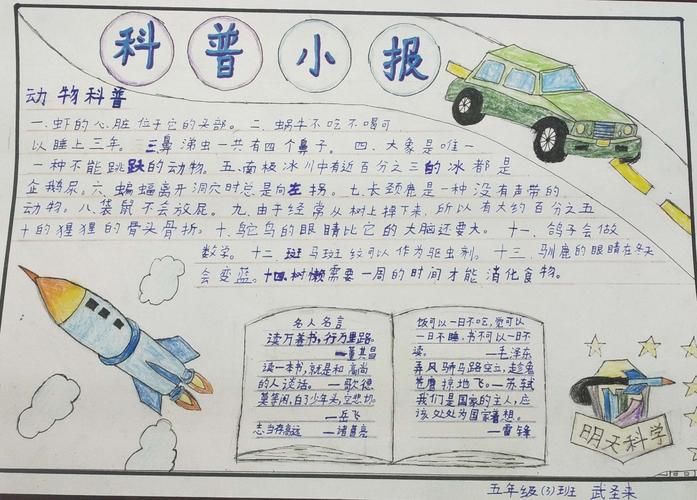 科普小报
动物科普
一、虾的心脏位于它的头部。二、蜗牛不吃不喝可
以睡上三年。三鼻涕虫一共有四个鼻子。四、大象是唯一
一种不能跳跃的动物。五、南极冰川中有近百分之三的冰都是
企鹅尿。六、蝙蝠离开洞穴时总是向左拐。七、长颈鹿是一种没有声带的
动物。八、袋鼠不会放屁。九、由于经常从树上掉下来，所以有大约百分之五
十的猩猩的骨头骨折。十、鸵鸟的眼睛比它的大脑还要大。十一、鸽子会做
数学。十二、斑马斑纹可以作为驱虫剂。十三、驯鹿的眼睛在冬天
会变蓝。十四、树懒需要一周的时间才能消化食物。
名人名言
读万卷书，行万里路。
—董其昌
读一本书，就是和高尚
的人谈话。—歌德
莫等闲，白了少年头，空悲切。
—岳飞
志当存高远—诸葛亮
饭可以一日不吃，觉可以
一日不睡，书不可以一日不
读。—毛泽东
弄风骄马跑空立，趁兔
苍鹰掠地飞。—苏轼
我们是国家的主人，应
该处处为国家着想。
—雷锋
明天科学
五年级(3)班 武圣来